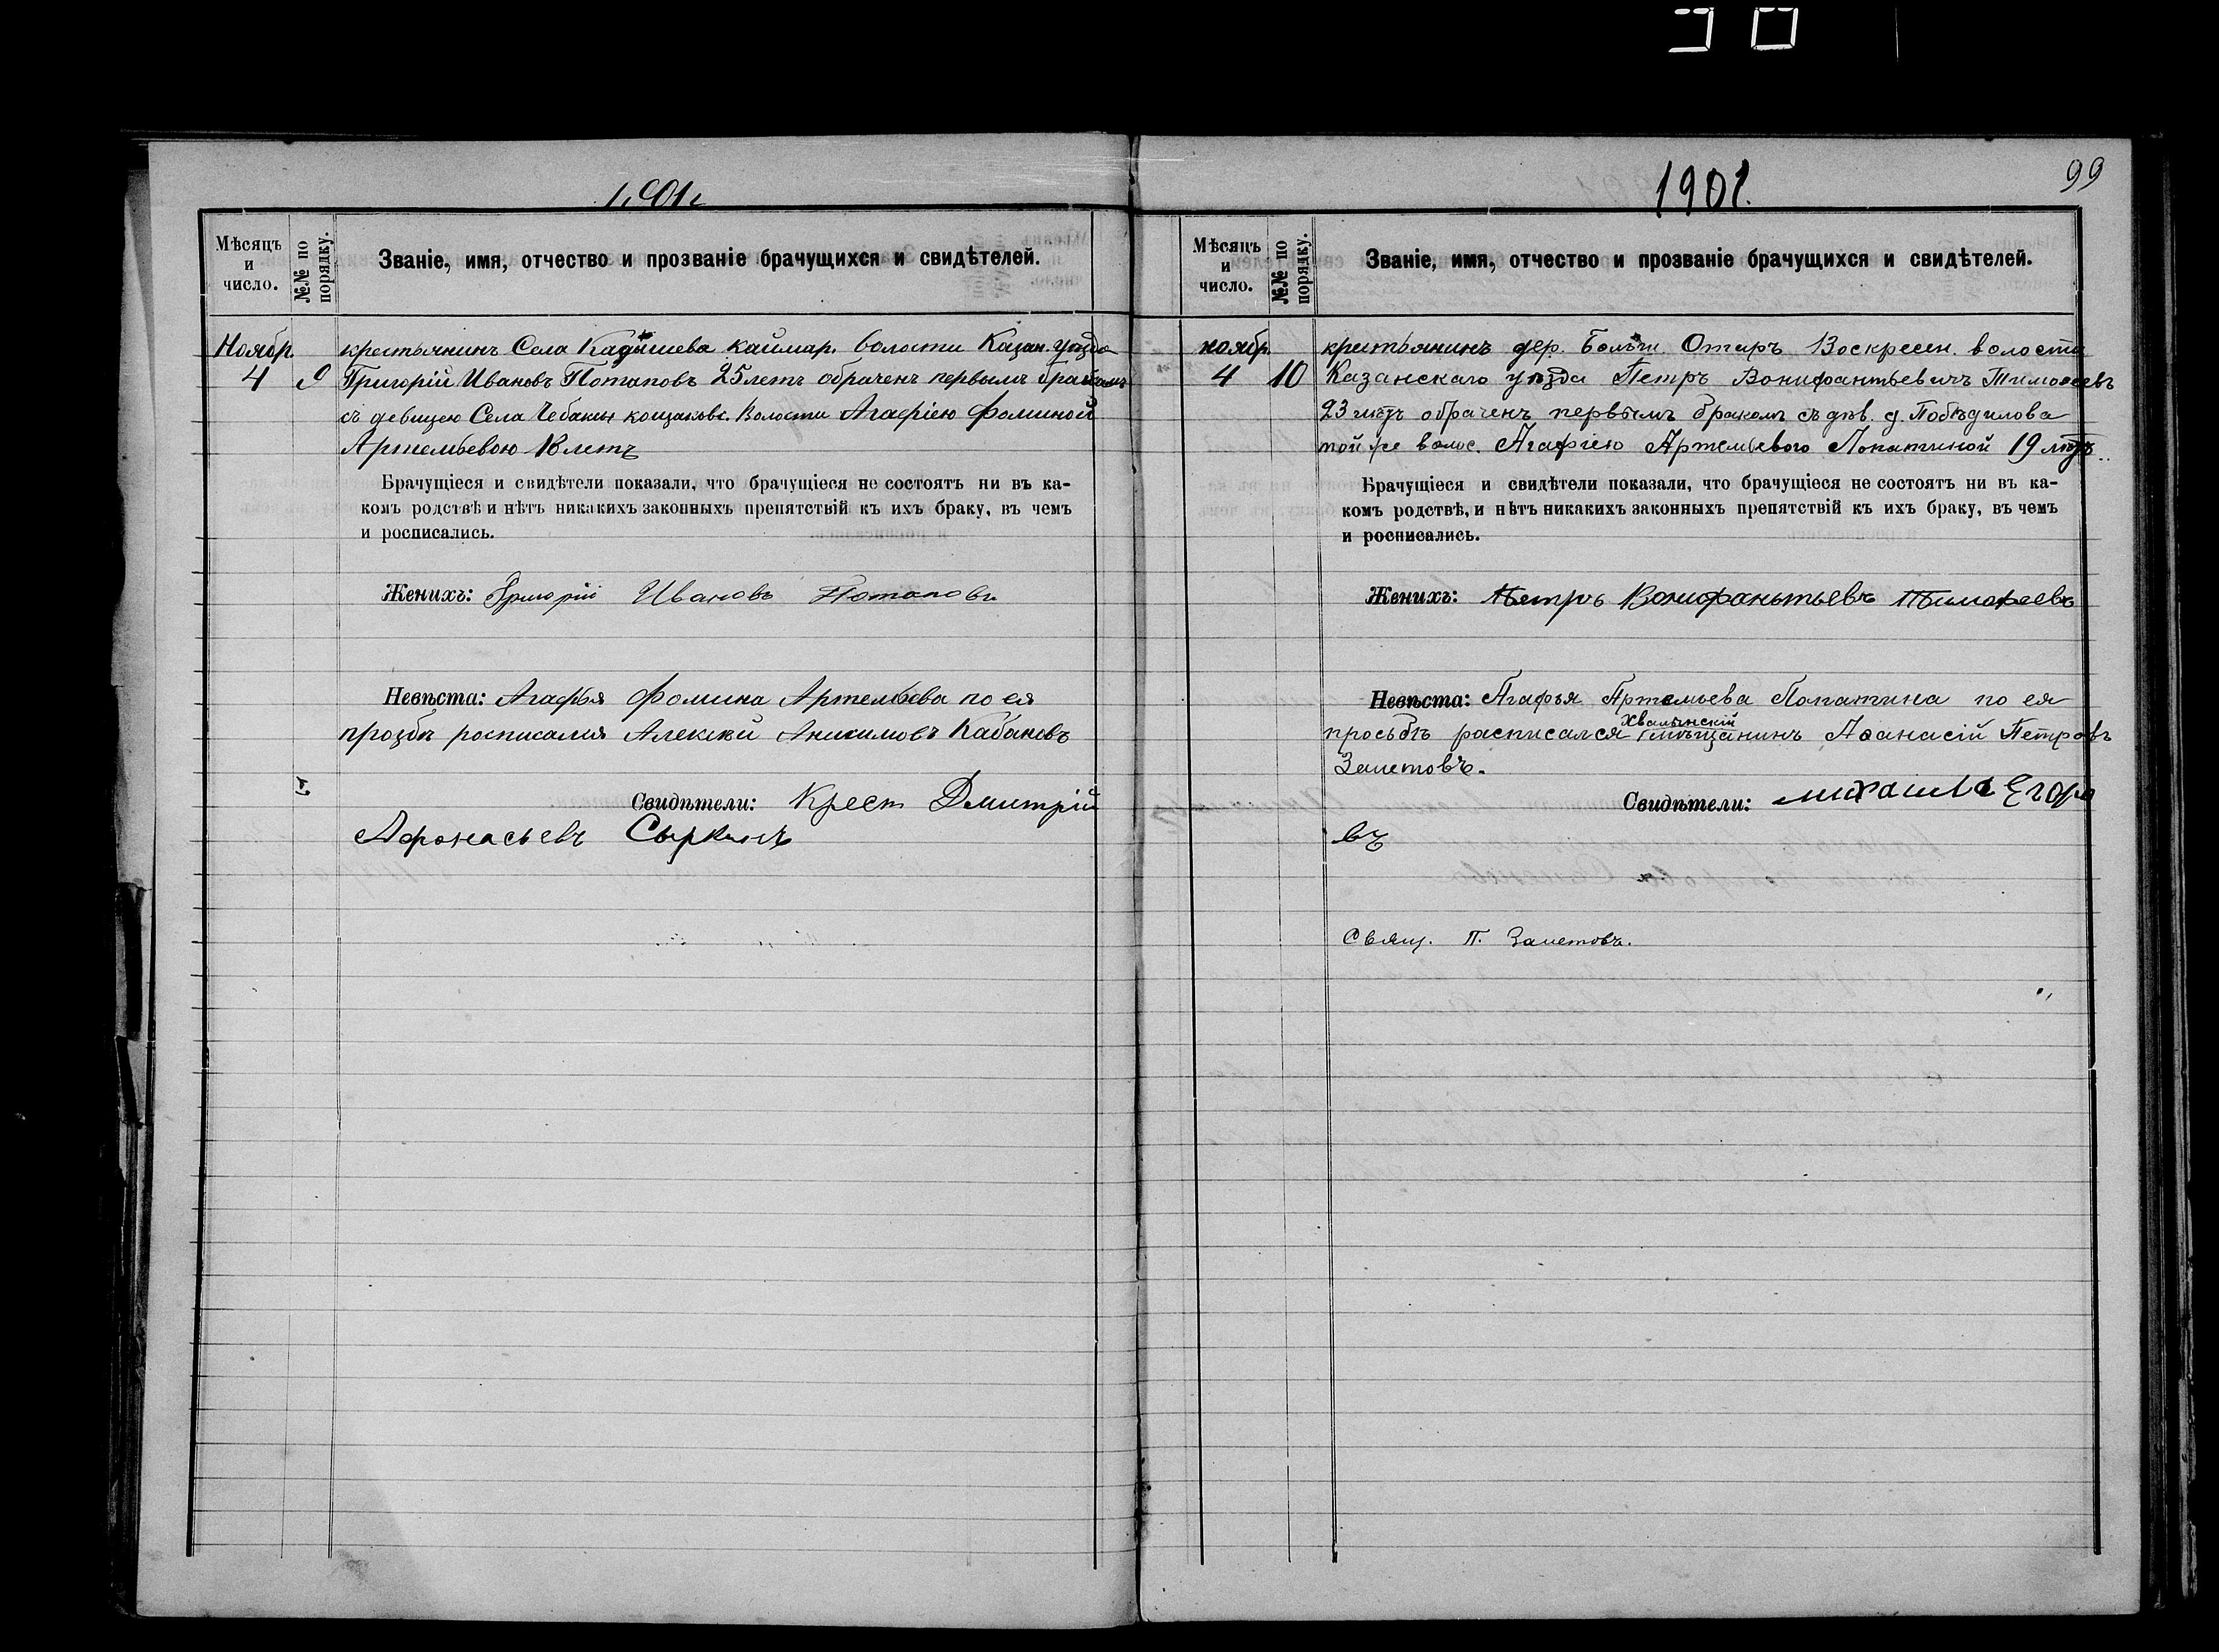 1901
Мѣсяцъ
и
число.
№№ по
порядку.
Званіе, имя, отчество и прозваніе брачущихся и свидѣтелей.
Ноябр.
4
9
крестьянинъ Села Кадышева каймар. волости Казан. уѣзда
Григорій Ивановъ Потаповъ 25 летъ обраченъ первымъ бракомъ
съ девицею Села Чебаксы кощаковс. Волости Агафіею Фоминой
Артемьевою 18 летъ
Брачущіеся и свидѣтели показали, что брачущіеся не состоятъ ни въ ка-
комъ родствѣ и нѣтъ никакихъ законныхъ препятствій къ ихъ браку, въ чемъ
и росписались.
Женихъ: Григорій Ивановъ Потаповъ
Невѣста: Агафья Фомина Артемьева по ея
прозбѣ росписался Алексѣй Аникимовъ Кабановъ
Свидѣтели: Крест Дмитрій
Афонасьевъ Сыркинъ
99
1901.
Мѣсяцъ
и
число.
№№ по
порядку.
Званіе, имя, отчество и прозваніе брачущихся и свидѣтелей.
ноябр.
4
10
крестьянинъ дер. Больши. Отаръ Воскресен. волости
Казанскаго уѣзда Петръ Вонифантьевичъ Тимоѳеевъ
23 лѣтъ обраченъ первымъ бракомъ съ дѣв. д. Побѣдилова
той же волос. Агафіею Артемьевою Лопатиной 19 лѣтъ
Брачущіеся и свидѣтели показали, что брачущіеся не состоятъ ни въ ка-
комъ родствѣ, и нѣтъ никакихъ законныхъ препятствій къ ихъ браку, въ чемъ
и росписались.
Женихъ: Петръ Вонифаньтьевъ Тимофеевъ
Невѣста: Агафья Артемьева Лопатина по ея
Хвалынскій
просьбѣ расписался мѣщанинъ Аѳанасій Петровъ
Залетовъ.
Свидѣтели: михаила Егоро
въ
Свящ. П. Залетовъ.